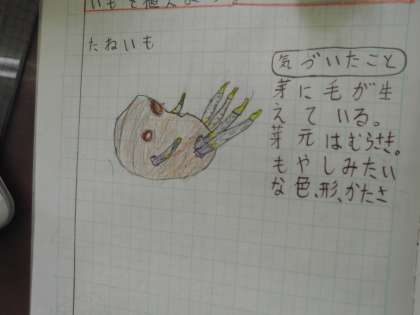 いもを植えよう
たねいも
気づいたこと
芽に毛が生
えている。
芽元はむらさき。
もやしみたい
な色、形、かたさ